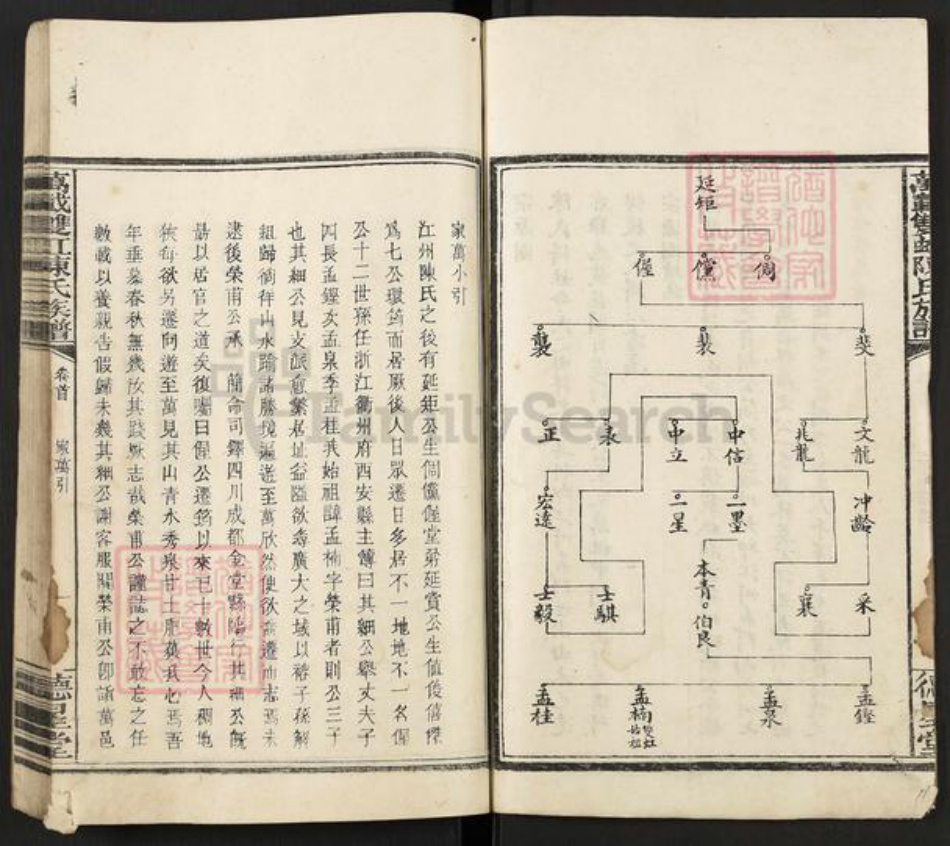 萬載雙㟁陳氏族譜
德星堂
延矩
侗
儻
偓
斐
裴
襲
文龍
兆龍
中信
中立
表
正
冲齡
一墨
二星
宏遠
采
襄
本青
伯良
士騏
士毅
孟鏗
孟泉
孟楠 雙㟁始祖
孟桂
家萬小引
江州陳氏之後有延矩公生侗儻偓堂弟延賞公生値俊僖傑
爲七公環筠而居厥後人日眾遷日多居不一地地不一名偓
公十二世孫任浙江衢州府西安縣主簿曰其細公舉丈夫子
四長孟鏗次孟泉季孟桂我始祖諱孟楠字榮甫者則公三子
也其細公見支派愈繁居址益隘欲尋廣大之域以裕子孫解
組歸徜徉山水踰諸勝境遍遊至萬欣然便欲喬遷而志焉未
逮後榮甫公承 簡命司鐸四川成都金堂縣臨行其細公旣
勗以居官之道矣復囑曰偓公遷筠以來已十數世今人稠地
狹每欲另遷向遊至萬見其山青水秀泉甘土肥奠我心焉吾
年垂暮春秋無幾汝其踐厥志哉榮甫公謹誌之不敢忘之任
數載以養親告假歸未幾其細公謝客服闋榮甫公卽詣萬邑
萬載雙㟁陳氏族譜
卷首
家萬引
一
德星堂
FamilySearch